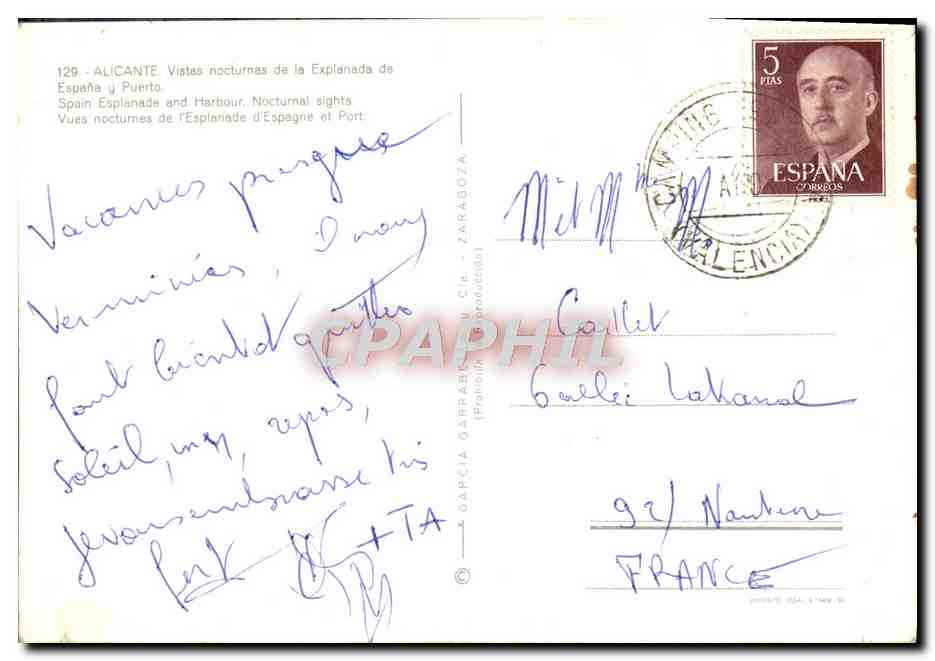 129. - ALICANTE. Vistas nocturnas de la Explanada de
España y Puerto.
Spain Esplanade and Harbour. Nocturnal sights
Vues nocturnes de l'Esplanade d'Espagne et Port.
Vacances presque
terminées, Il nous
faut bientôt quitter
soleil, mer, repos,
Je vous embrasse très
fort
+ TA
© GARCIA GARRABELLA y Cia. - ZARAGOZA
(Prohibida la reproducción)
5
PTAS
ESPAÑA
CORREOS
CAMPING
(VALENCIA)
M et Mme M
Caillet
6 allée Lakanal
92/ Nanterre
FRANCE
CPAPHIL